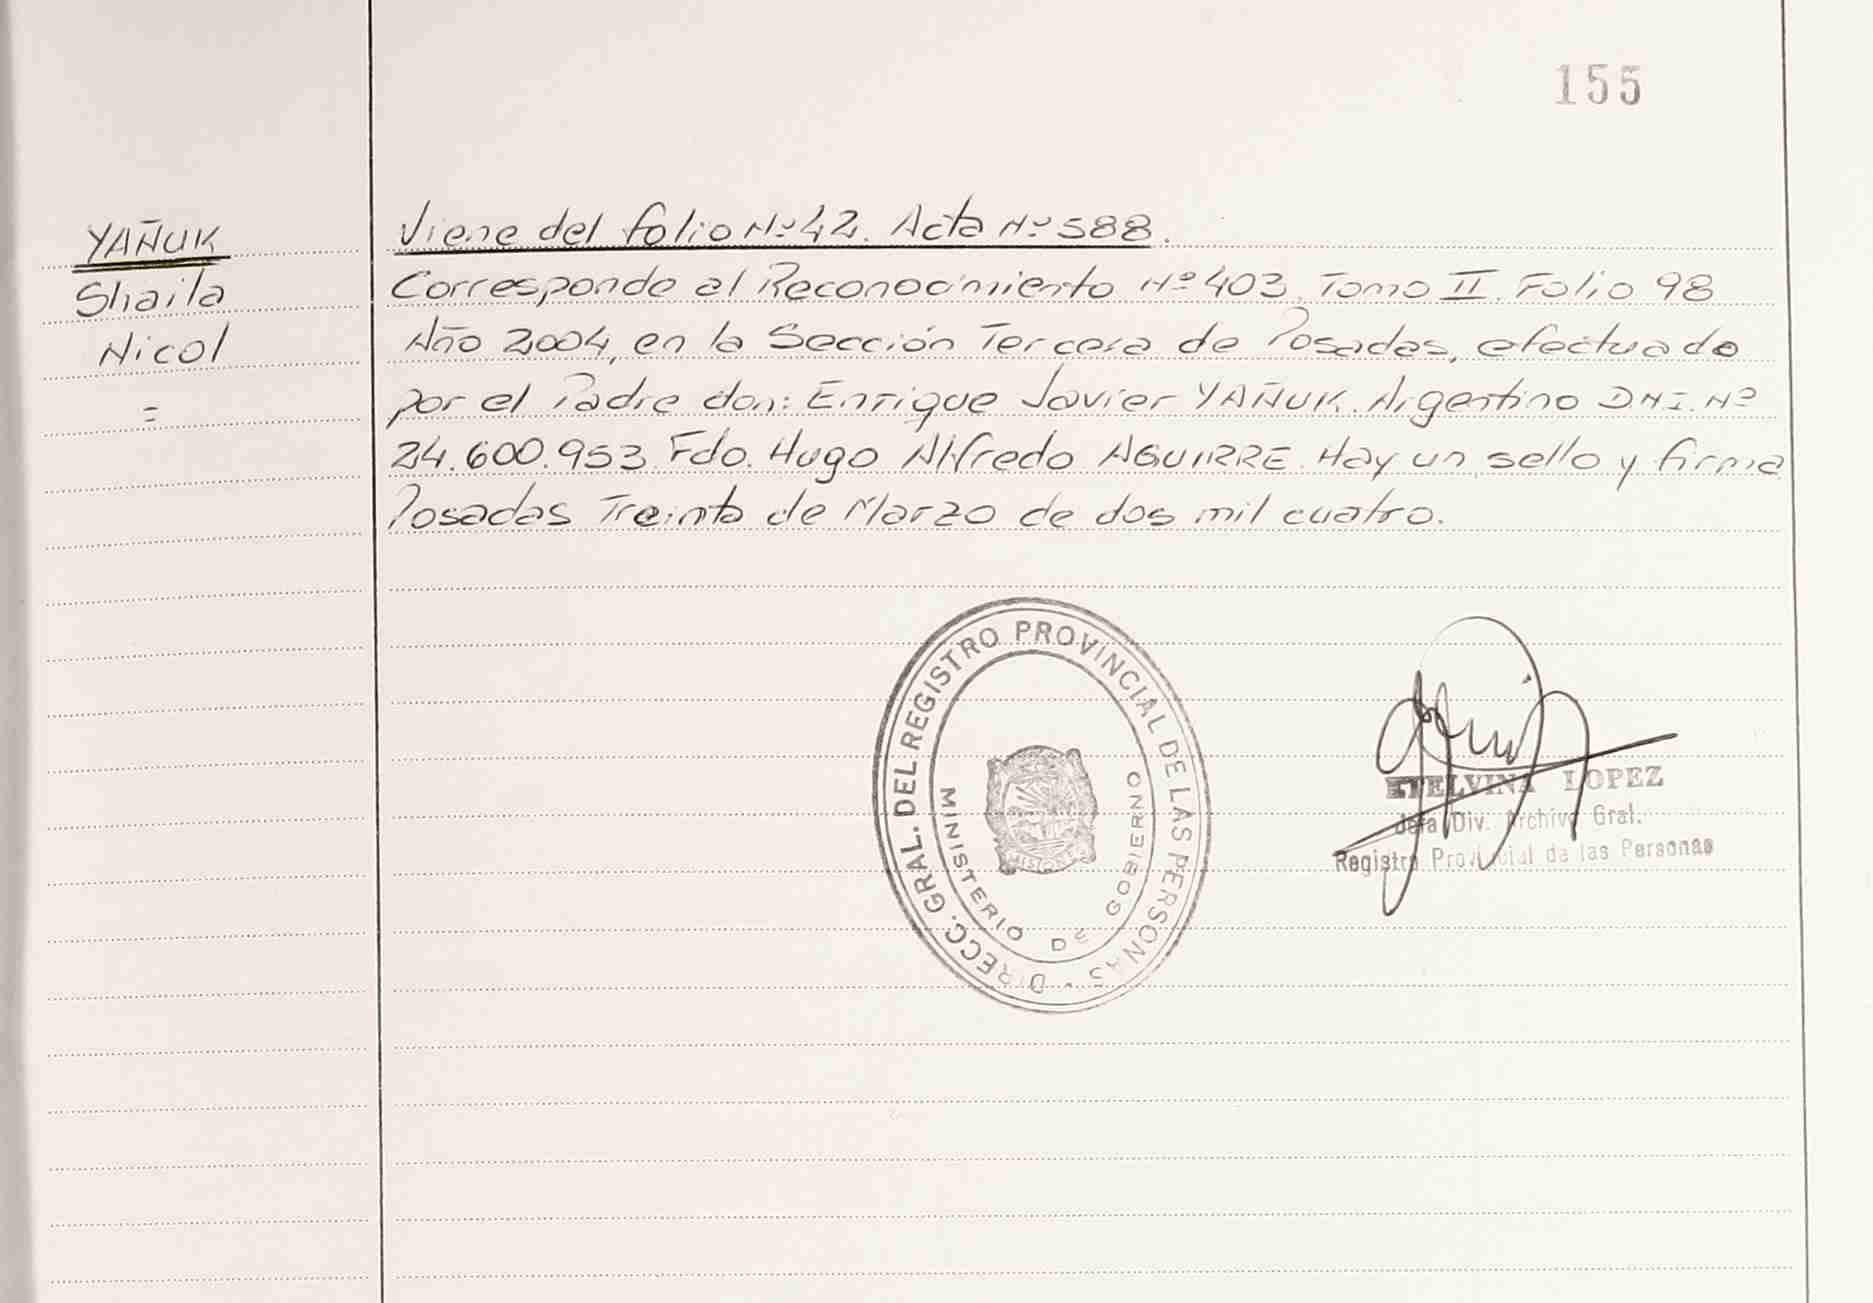 155
YAÑUK
Shaila
Nicol
=
Viene del folio Nº 42. Acta Nº 588.
Corresponde al Reconocimiento Nº 403, Tomo II. Folio 98
Año 2004, en la Sección Tercera de Posadas, efectuado
por el Padre don: Enrique Javier YAÑUK. Argentino D.N.I. Nº
24.600.953. Fdo. Hugo Alfredo AGUIRRE. Hay un sello y firma
Posadas Treinta de Marzo de dos mil cuatro.
DIRECC. GRAL. DEL REGISTRO PROVINCIAL DE LAS PERSONAS
MINISTERIO DE GOBIERNO
MISIONES
ETELVINA LOPEZ
Jefa Div. Archivo Gral.
Registro Provincial de las Personas